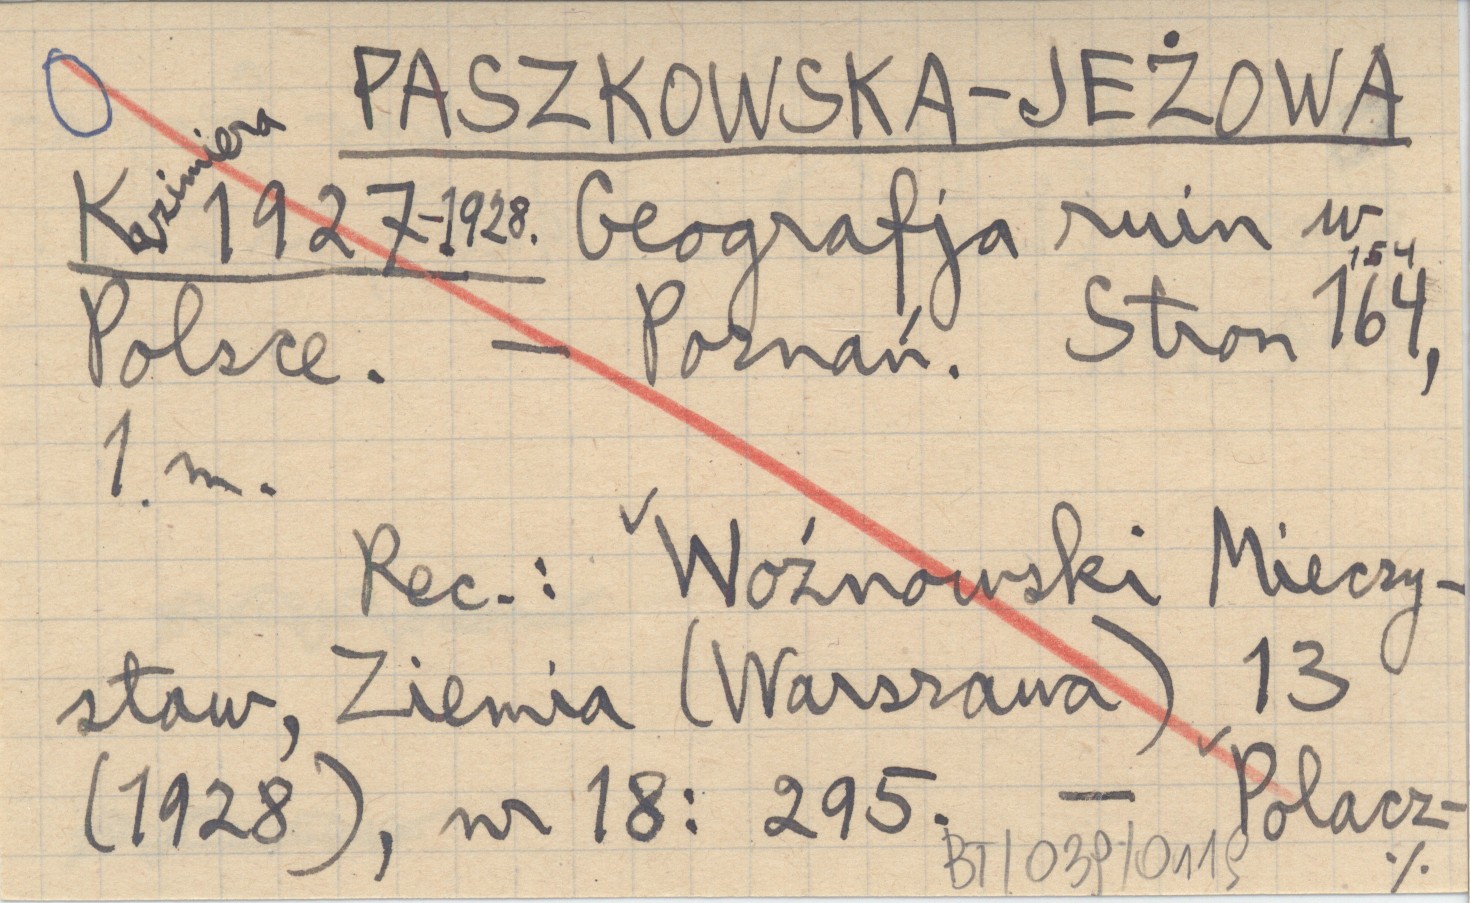 PASZKOWSKA-JEŻOWA
Kazimiera 1927-1928. Geografja ruin w
154
Polsce. — Poznań. Stron 164,
1 m.
Rec.: ✓Woźnowski Mieczy-
sław, Ziemia (Warszawa) 13
(1928), nr 18: 295. — ✓Polacz-
BT/039/0119
./.